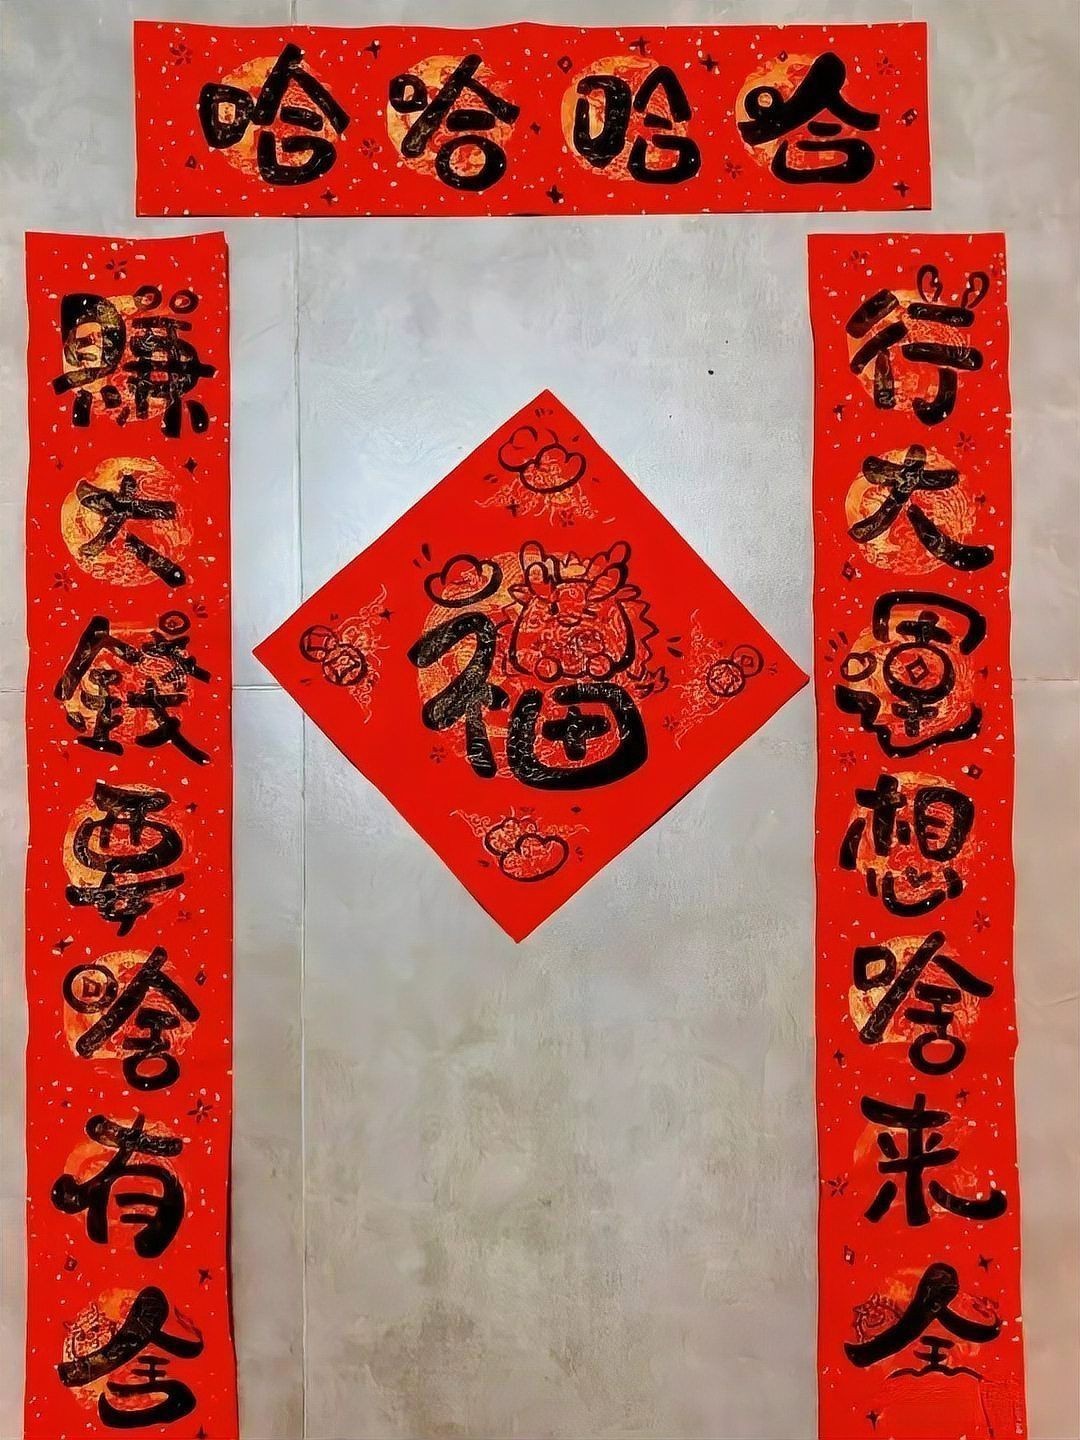 哈哈哈哈
行大運想啥来啥
福
賺大錢要啥有啥